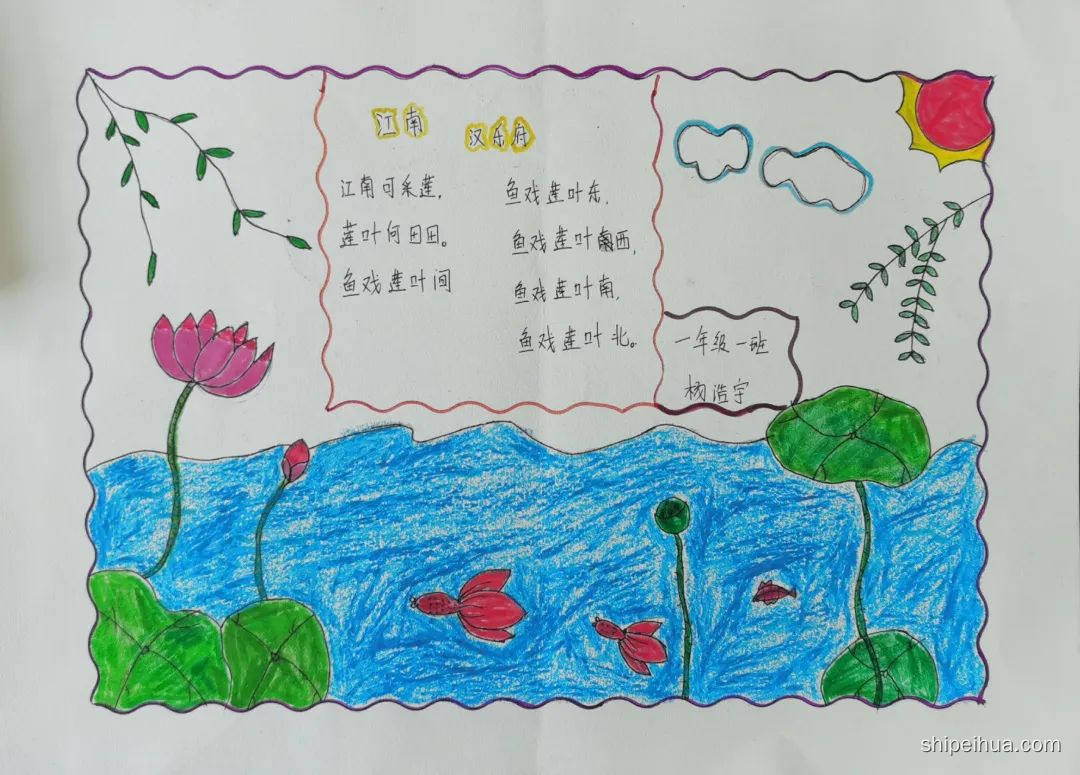 江南
汉乐府
江南可采莲，
莲叶何田田。
鱼戏莲叶间
鱼戏莲叶东，
鱼戏莲叶西，
鱼戏莲叶南，
鱼戏莲叶北。
一年级一班
杨浩宇
shipeihua.com